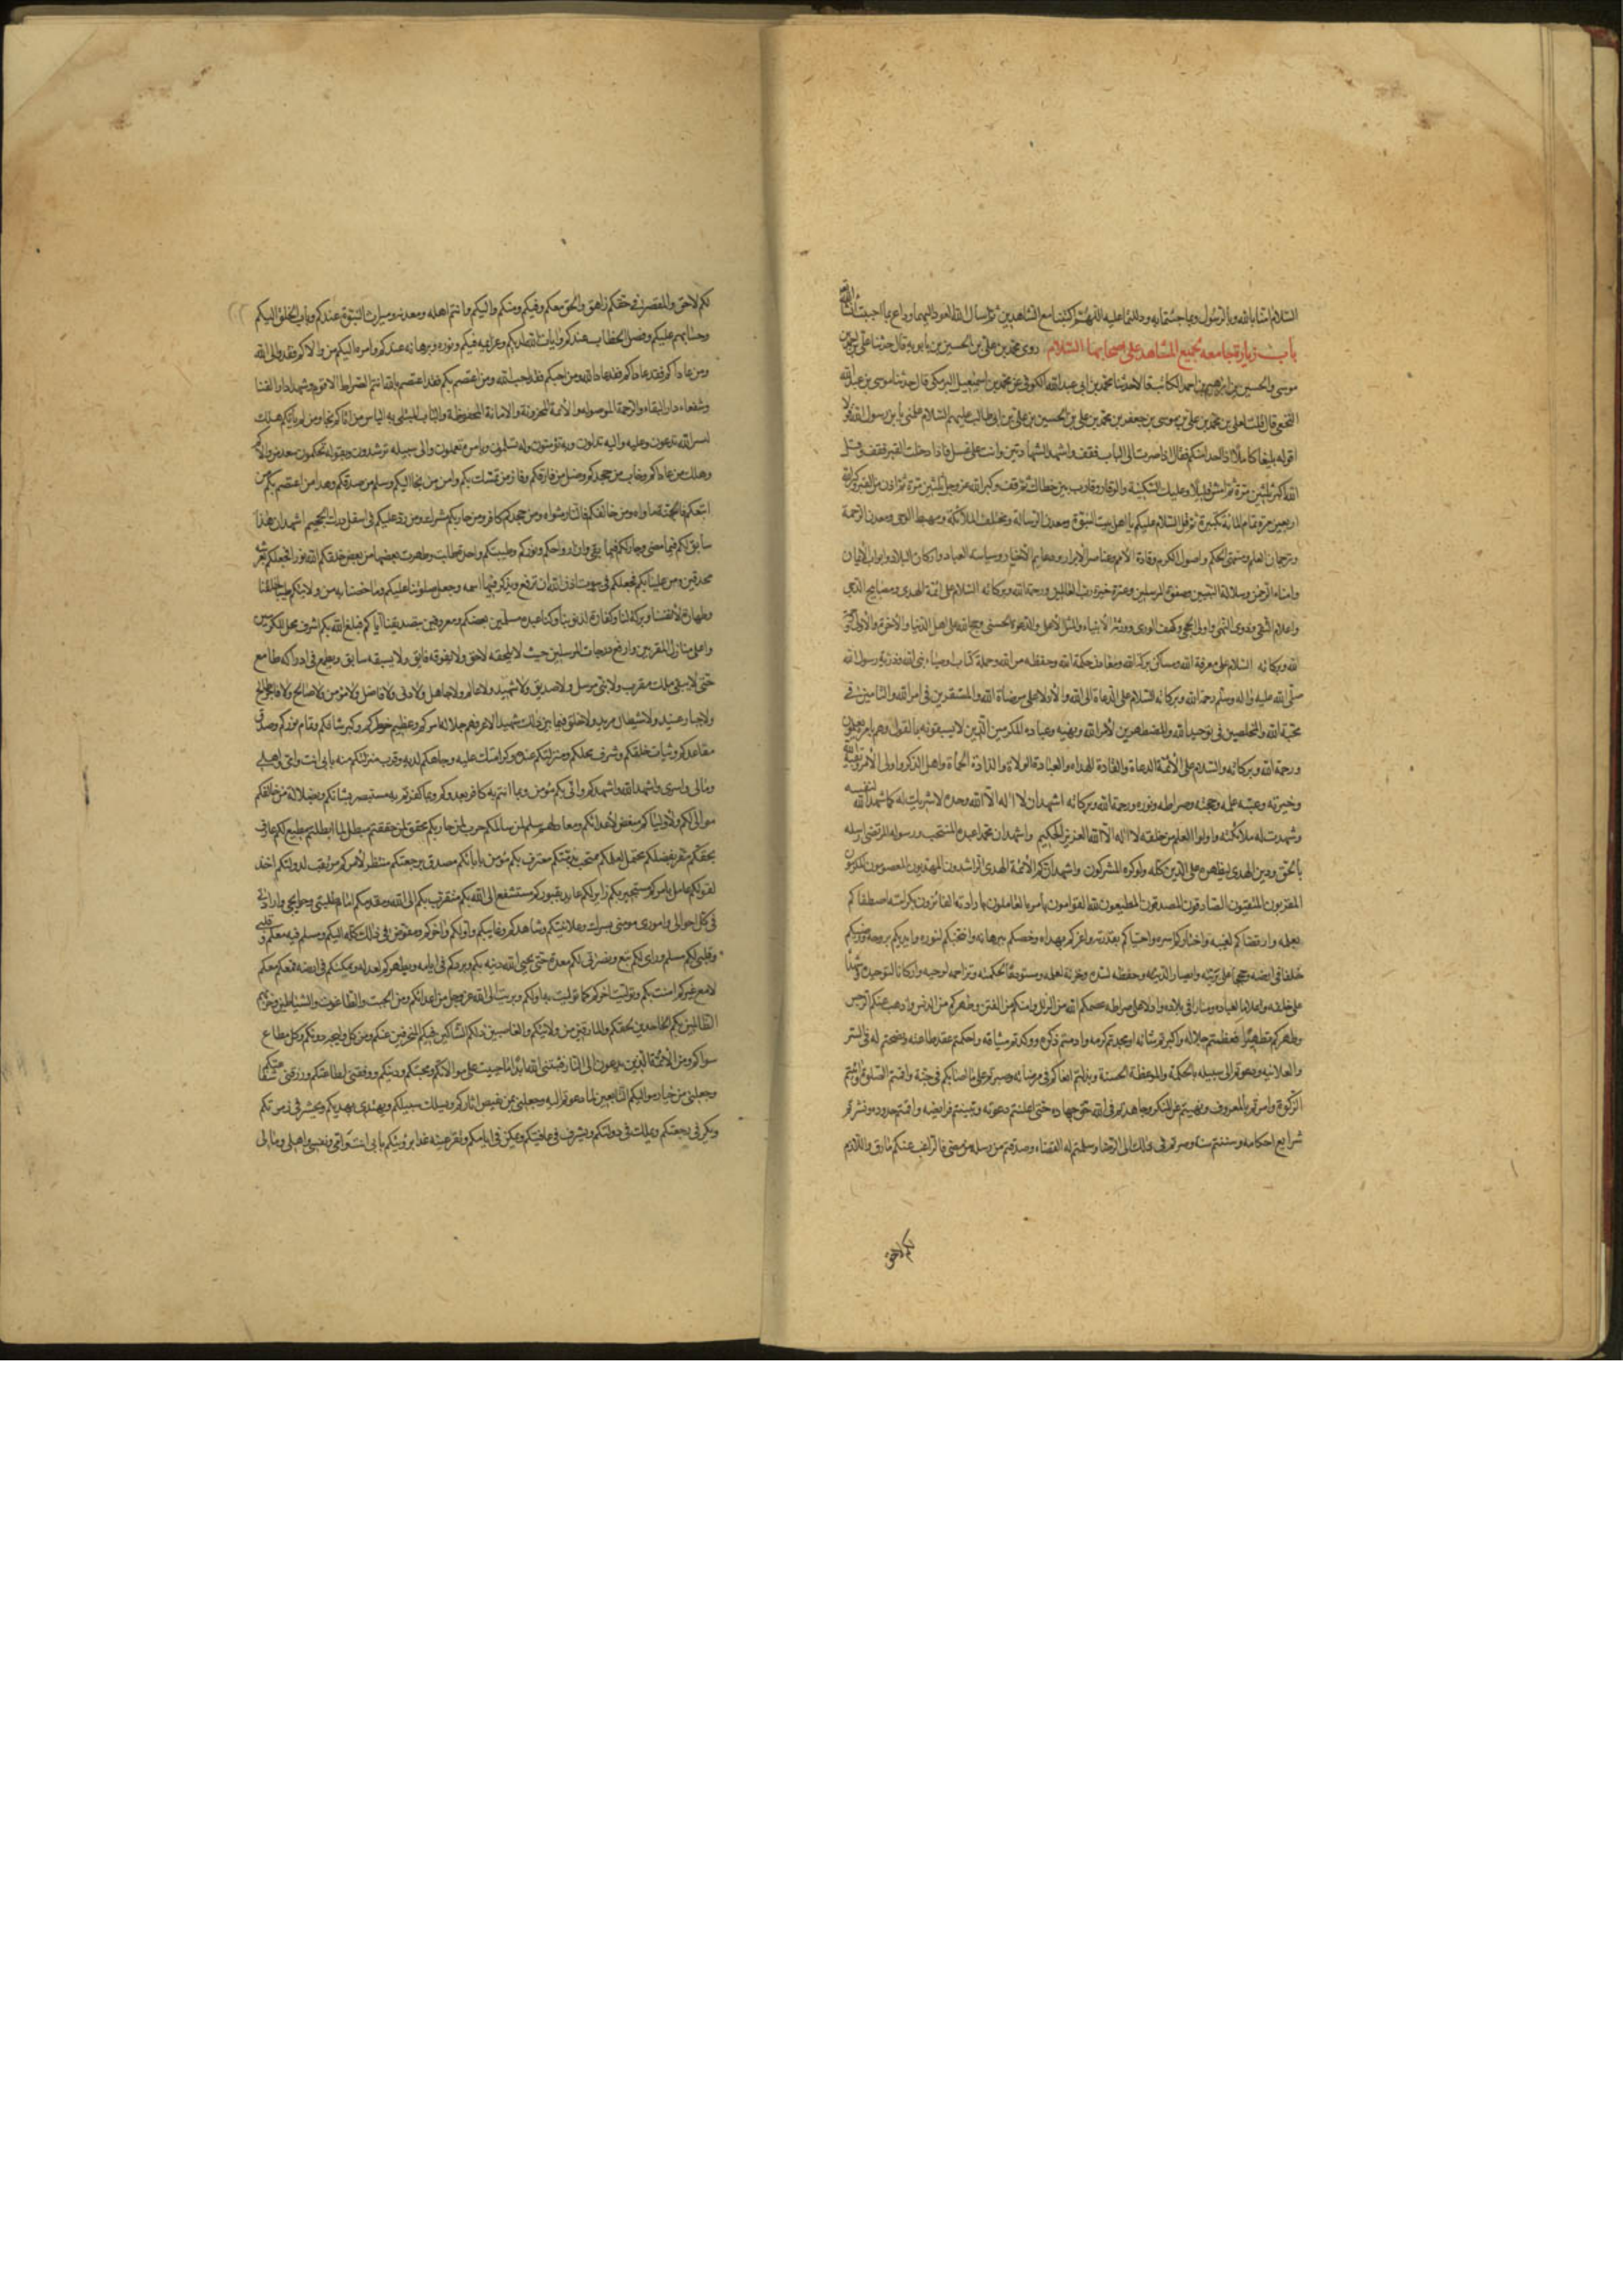 السلام امنا بالله وبالرسول وبما جئتما به ودللتما عليه اللهم اكتبنا مع الشاهدين ثم اسال الله العود اليهما وادع بما احببت ان شاء الله
باب زيارة جامعه لجميع المشاهد على اصحابها السلام روى محمد بن علي بن الحسين بن بابويه قال حدثنا علي بن احمد بن
موسى والحسين بن ابرهيم بن احمد الكاتب قالا حدثنا محمد بن ابي عبد الله الكوفي عن محمد بن اسمعيل البرمكي قال حدثنا موسى بن عبد الله
النخعي قال قلت لعلي بن محمد بن علي بن موسى بن جعفر بن محمد بن علي بن الحسين بن علي بن ابي طالب عليهم السلام علمني يا بن رسول الله قولا
اقوله بليغا كاملا اذا زرت واحدا منكم فقال اذا صرت الى الباب فقف واشهد الشهادتين وانت على غسل فاذا دخلت القبر فقف وقل
الله اكبر ثلثين مرة ثم امش قليلا وعليك السكينة والوقار وقارب بين خطاك ثم قف وكبر الله عز وجل ثلثين مرة ثم ادن من القبر وكبر الله
اربعين مرة تمام المائة تكبيرة ثم قل السلام عليكم يا اهل بيت النبوة ومعدن الرسالة ومختلف الملائكة ومهبط الوحي ومعدن الرحمة
وخزان العلم ومنتهى الحلم واصول الكرم وقادة الامم وعناصر الابرار ودعايم الاخيار وسياسة العباد واركان البلاد وابواب الايمان
وامناء الرحمن وسلالة النبيين وصفوة المرسلين وعترة خيرة رب العالمين ورحمة الله وبركاته السلام على ائمة الهدى ومصابيح الدجى
واعلام التقى وذوى النهى واولى الحجى وكهف الورى وورثة الانبياء والمثل الاعلى والدعوة الحسنى وحجج الله على اهل الدنيا والاخرة والاولى ورحمة
الله وبركاته السلام على محال معرفة الله ومساكن بركة الله ومعادن حكمة الله وحفظة سر الله وحملة كتاب الله واوصياء نبى الله وذرية رسول الله
صلى الله عليه واله وسلم ورحمة الله وبركاته السلام على الدعاة الى الله والادلاء على مرضاة الله والمستقرين فى امر الله والتامين فى
محبة الله والمخلصين فى توحيد الله والمظهرين لامر الله ونهيه وعباده المكرمين الذين لا يسبقونه بالقول وهم بامره يعملون
ورحمة الله وبركاته والسلام على الائمة الدعاة والقادة الهداة والسادة الولاة والذادة الحماة واهل الذكر واولى الامر وبقية الله
وخيرته وعيبة علمه وحجته وصراطه ونوره ورحمة الله وبركاته اشهد ان لا اله الا الله وحده لا شريك له كما شهد الله لنفسه
وشهدت له ملائكته واولوا العلم من خلقه لا اله الا الله العزيز الحكيم واشهد ان محمدا عبده المنتجب ورسوله المرتضى ارسله
بالحق ودين الهدى ليظهره على الدين كله ولو كره المشركون واشهد انكم الائمة الهدى الراشدون المهديون المعصومون المكرمون
المقربون المتقيون الصادقون المصدقون المطيعون لله القوامون بامره العاملون بارادته الفائزون بكرامته اصطفاكم
بعلمه وارتضاكم لغيبه واختاركم لسره واجتباكم بقدرته واعزكم بهداه وخصكم ببرهانه وانتجبكم لنوره وايدكم بروحه ورضيكم
خلفا فى ارضه وحججا على بريته وانصارا لدينه وحفظة لسره وخزنة لعلمه ومستودعا لحكمته وتراجمة لوحيه واركانا لتوحيده وشهداء
على خلقه واعلاما لعباده ومنارا فى بلاده وادلاء على صراطه عصمكم الله من الزلل وامنكم من الفتن وطهركم من الدنس واذهب عنكم الرجس
وطهركم تطهيرا فعظمتم جلاله واكبرتم شانه ومجدتم كرمه وادمتم ذكره ووكدتم ميثاقه واحكمتم عقد طاعته ونصحتم له فى السر
والعلانيه ودعوتم الى سبيله بالحكمة والموعظة الحسنة وبذلتم انفسكم فى مرضاته وصبرتم على ما اصابكم فى جنبه واقمتم الصلوة واتيتم
الزكوة وامرتم بالمعروف ونهيتم عن المنكر وجاهدتم فى الله حق جهاده حتى اعلنتم دعوته وبينتم فرايضه واقمتم حدوده ونشرتم
شرايع احكامه وسننتم سنته وصرتم فى ذلك الى الرضا وسلمتم له القضاء وصدقتم من رسله من مضى فالراغب عنكم مارق واللازم
لكم لاحق
لكم لاحق والمقصر فى حقكم زاهق والحق معكم وفيكم ومنكم واليكم وانتم اهله ومعدنه وميراث النبوة عندكم واياب الخلق اليكم
وحسابهم عليكم وفصل الخطاب عندكم وايات الله لديكم وعزايمه فيكم ونوره وبرهانه عندكم وامره اليكم من والاكم فقد والى الله
ومن عاداكم فقد عاد الله ومن احبكم فقد احب الله ومن اعتصم بكم فقد اعتصم بالله انتم الصراط الاقوم وشهداء دار الفنا
وشفعاء دار البقاء والرحمة الموصولة والاية المخزونة والامانة المحفوظة والباب المبتلى به الناس من اتاكم نجا ومن لم ياتكم هلك
الى الله تدعون وعليه تدلون وبه تؤمنون وله تسلمون وبامره تعملون والى سبيله ترشدون وبقوله تحكمون سعد من والاكم
وهلك من عاداكم وخاب من جحدكم وضل من فارقكم وفاز من تمسك بكم وامن من لجا اليكم وسلم من صدقكم وهدى من اعتصم بكم من
اتبعكم فالجنة ماواه ومن خالفكم فالنار مثواه ومن جحدكم كافر ومن حاربكم مشرك ومن رد عليكم فى اسفل درك الجحيم اشهد ان هذا
سابق لكم فيما مضى وجار لكم فيما بقى وان ارواحكم ونوركم وطينتكم واحدة طابت وطهرت بعضها من بعض خلقكم الله نورا فجعلكم بعرشه
محدقين ومن علينا بكم فجعلكم فى بيوت اذن الله ان ترفع ويذكر فيها اسمه وجعل صلواتنا عليكم وما خصنا به من ولايتكم طيبا لخلقنا
وطهارة لانفسنا وبركة لنا وكفارة لذنوبنا وكنا عنده مسلمين بفضلكم ومعروفين بتصديقنا اياكم فبلغ الله بكم اشرف محل المكرمين
واعلى منازل المقربين وارفع درجات المرسلين حيث لا يلحقه لاحق ولا يفوقه فايق ولا يسبقه سابق ولا يطمع فى ادراكه طامع
حتى لا يبقى ملك مقرب ولا نبى مرسل ولا صديق ولا شهيد ولا عالم ولا جاهل ولا دنى ولا فاضل ولا مؤمن ولا صالح ولا فاجر طالح
ولا جبار عنيد ولا شيطان مريد ولا خلق فيما بين ذلك شهيد الا عرفهم جلالة امركم وعظيم خطركم وكبر شانكم وتمام نوركم وصدق
مقاعدكم وثبات خلقكم وشرف محلكم ومنزلتكم عنده وكرامتكم عليه وخاصتكم لديه وقرب منزلتكم منه بابى انت وامى واهلى
ومالى واسرتى واشهد الله واشهدكم وانى بكم مؤمن وبما امنتم به كافر بعدوكم وبما كفرتم به مستبصر بشانكم وبضلالة من خالفكم
موالى لكم ولاوليائكم مبغض لاعدائكم ومعاد لهم سلم لمن سالمكم حرب لمن حاربكم محقق لما حققتم مبطل لما ابطلتم مطيع لكم عارف
بحقكم مقر بفضلكم محتمل لعلمكم محتجب بذمتكم معترف بكم مؤمن بايابكم مصدق برجعتكم منتظر لامركم مرتقب لدولتكم اخذ
لقولكم عامل بامركم مستجير بكم زاير لكم عايذ بقبوركم مستشفع الى الله بكم متقرب بكم الى الله ومقدمكم امام طلبتى وحوايجى وارادتى
فى كل احوالى وامورى مومن بسركم وعلانيتكم وشاهدكم وغايبكم واولكم واخركم ومفوض فى ذلك كله اليكم ومسلم فيه معكم وقلبى
وقلبى لكم مسلم ورايى لكم تبع ونصرتى لكم معدة حتى يحيى الله دينه بكم ويردكم فى ايامه ويظهركم لعدله ويمكنكم فى ارضه فمعكم معكم
لا مع غيركم امنت بكم وتوليت اخركم بما توليت به اولكم وبرئت الى الله عز وجل من اعدائكم ومن الجبت والطاغوت والشياطين وحزبهم
الظالمين لكم الجاحدين لحقكم والمارقين من ولايتكم والغاصبين لارثكم الشاكين فيكم المنحرفين عنكم ومن كل وليجة دونكم وكل مطاع
سواكم ومن الائمة الذين يدعون الى النار فثبتنى الله ابدا ما حييت على موالاتكم ومحبتكم ودينكم ووفقنى لطاعتكم ورزقنى شفاعتكم
وجعلنى من خيار مواليكم التابعين لما دعوتم اليه وجعلنى ممن يقتص اثاركم ويسلك سبيلكم ويهتدى بهديكم ويحشر فى زمرتكم
ويكر فى رجعتكم ويملك فى دولتكم ويشرف فى عافيتكم ويمكن فى ايامكم وتقر عينه غدا برؤيتكم بابى انت وامى ونفسى واهلى ومالى